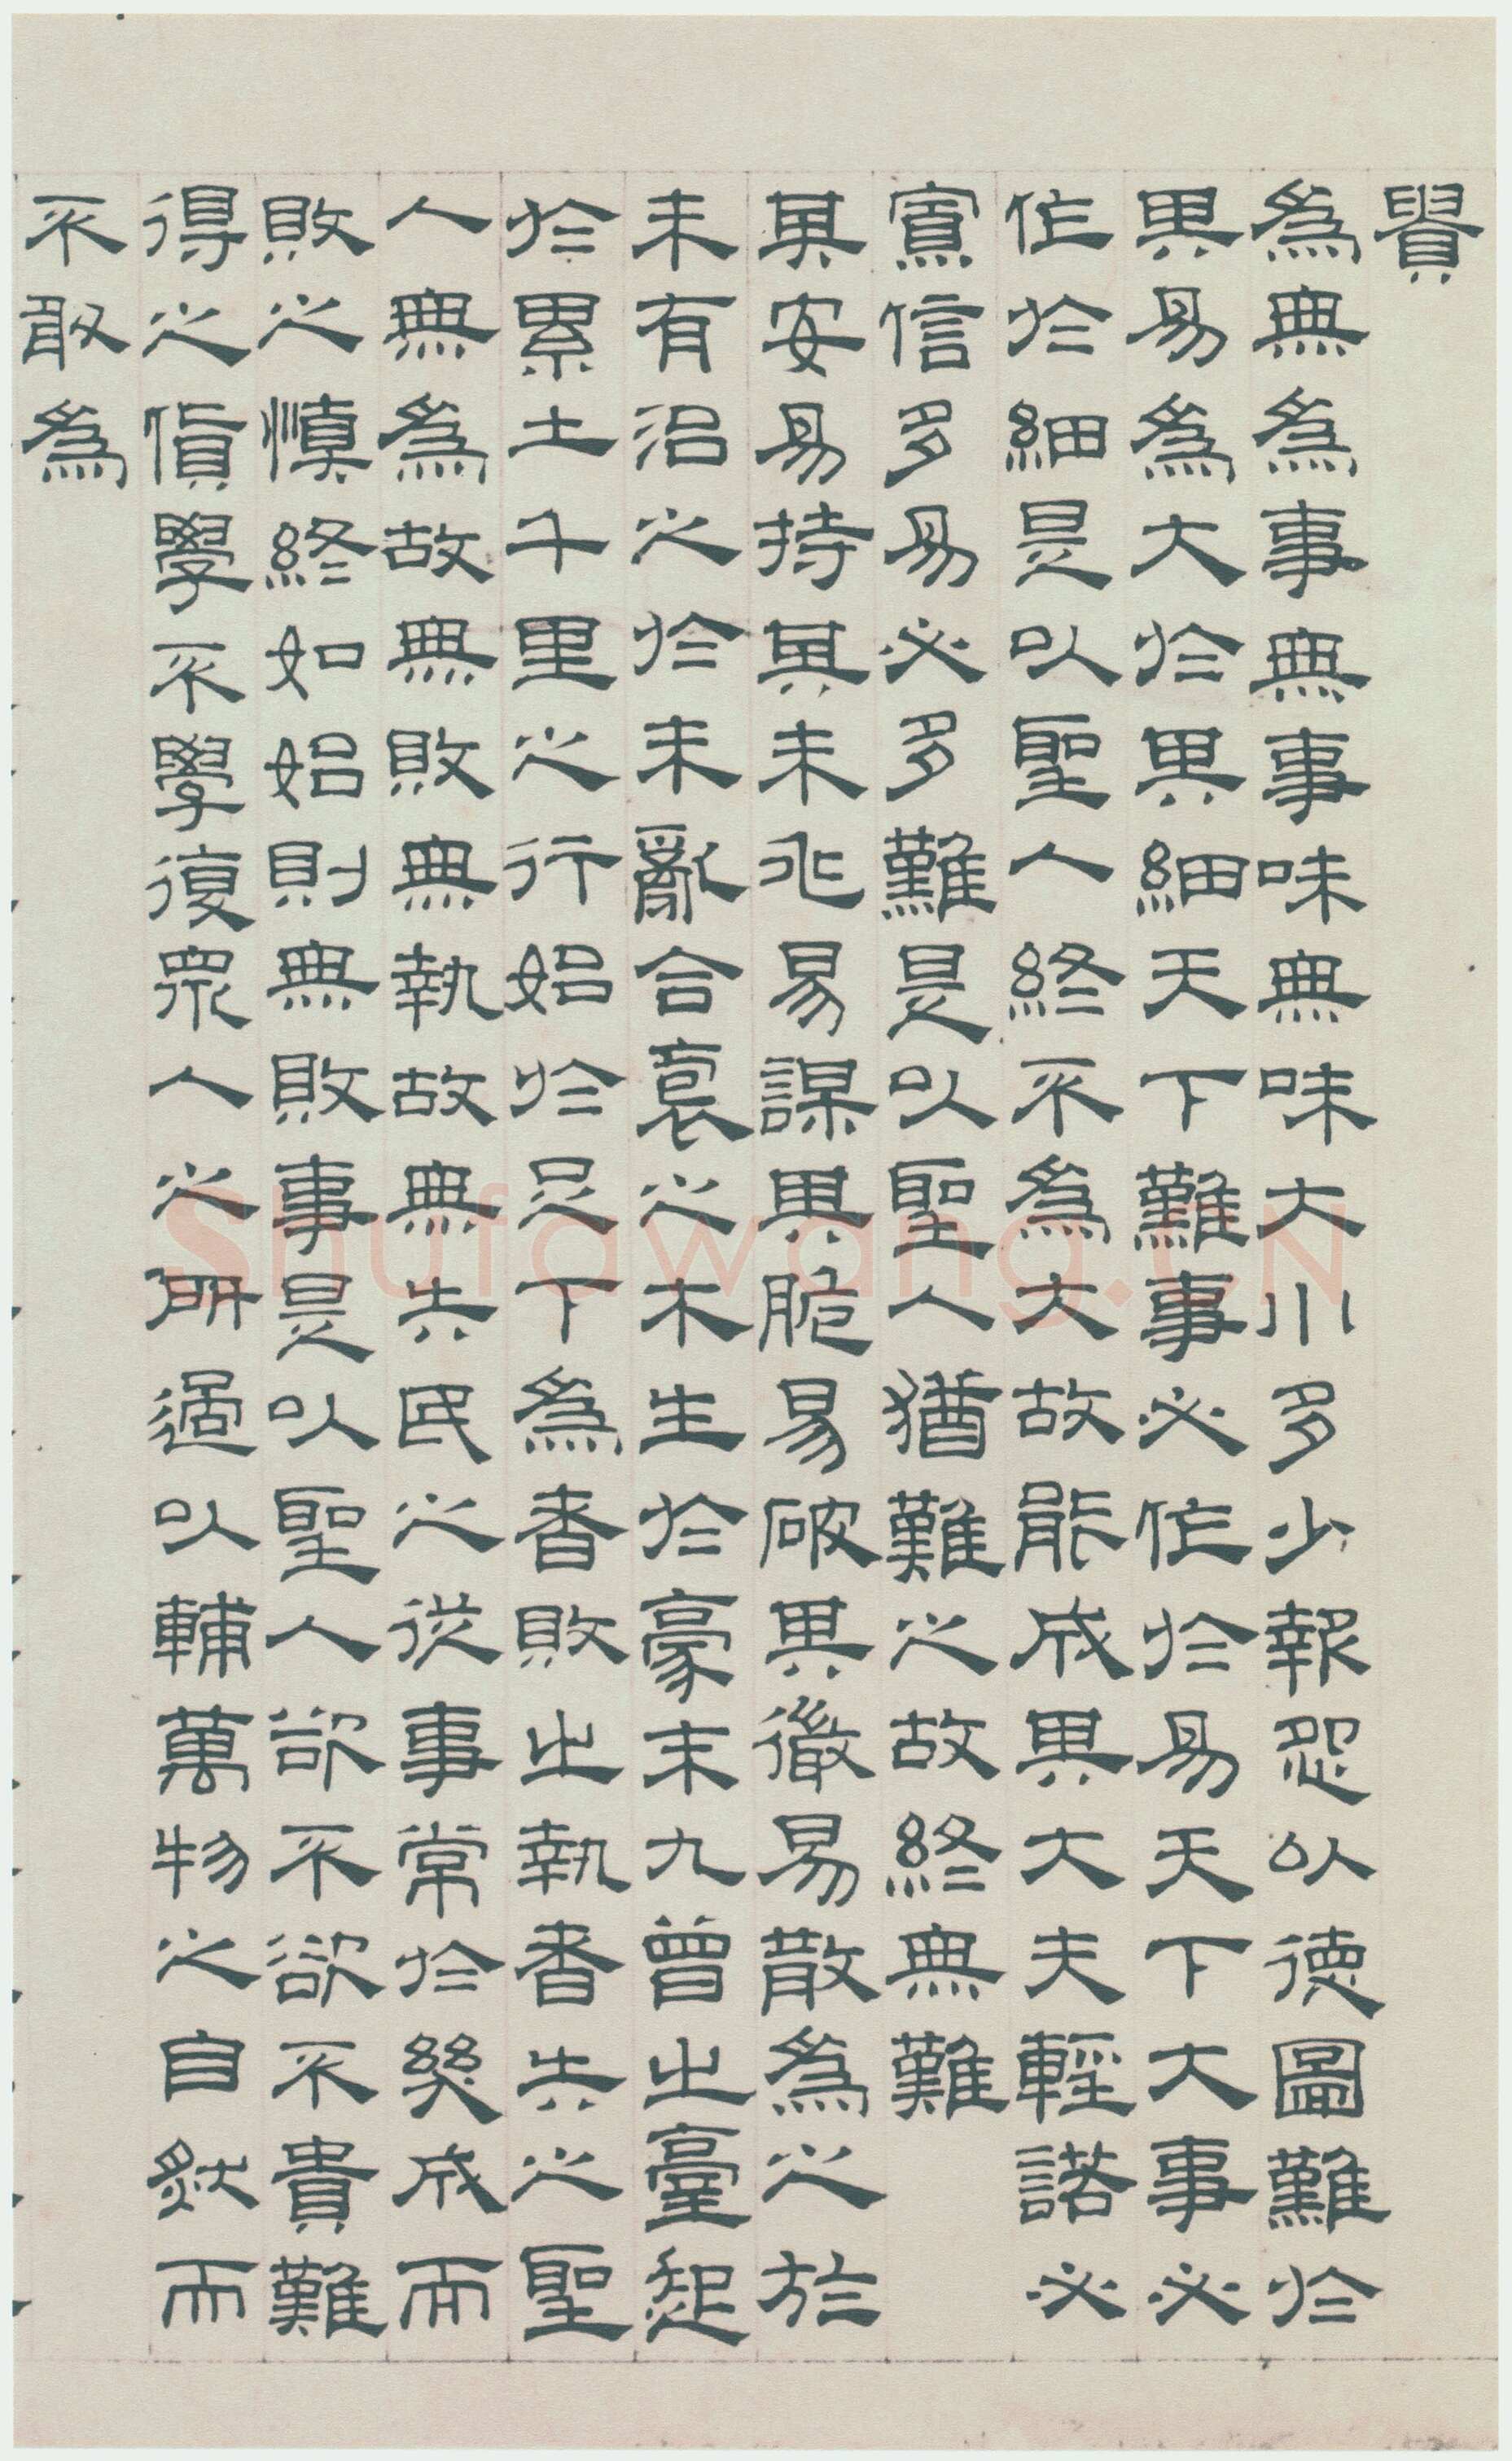 貴
為無為事無事味無味大小多少報怨以德圖難於
其易為大於其細天下難事必作於易天下大事必
作於細是以聖人終不為大故能成其大夫輕諾必
寡信多易必多難是以聖人猶難之故終無難
其安易持其未兆易謀其脆易破其微易散為之於
未有治之於未亂合裒之木生於豪末九曾之臺起
於累土千里之行始於足下為者敗之執者失之聖
人無為故無敗無執故無失民之從事常於幾成而
敗之慎終如始則無敗事是以聖人欲不欲不貴難
得之貨學不學復眾人之所過以輔萬物之自然而
不敢為
Shufawang.CN